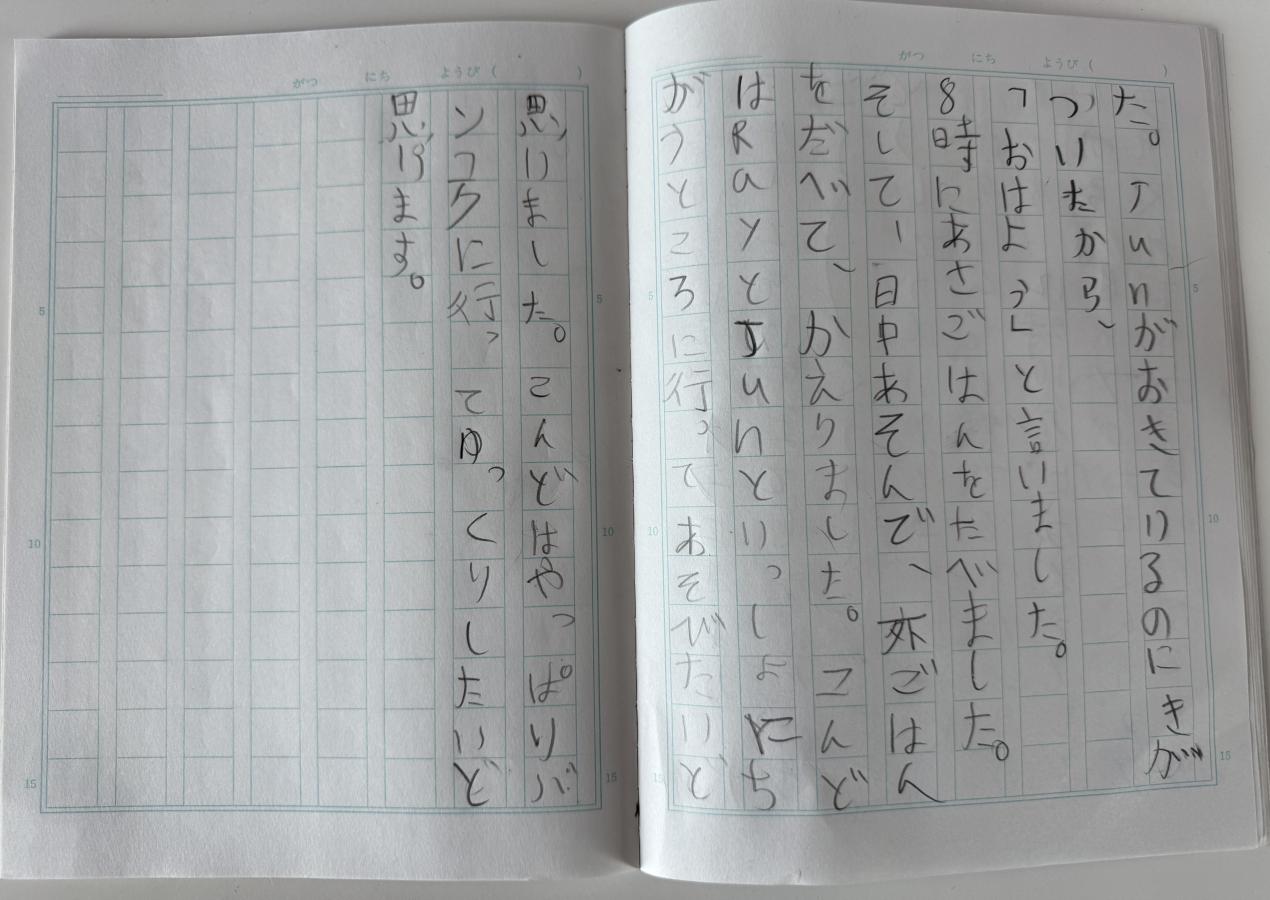 がつ にち ようび ( )
た。Junがおきているのにきが
ついたから、
「おはよう」と言いました。
8時にあさごはんをたべました。
そして一日中あそんで、外ごはん
をだべて、かえりました。こんど
はRayとJunといっしょにち
がうところに行ってあそびたいど
5
10
15
がつ にち ようび ( )
思いました。こんどはやっぱりバ
ンコクに行ってゆっくりしたいど
思います。
5
10
15